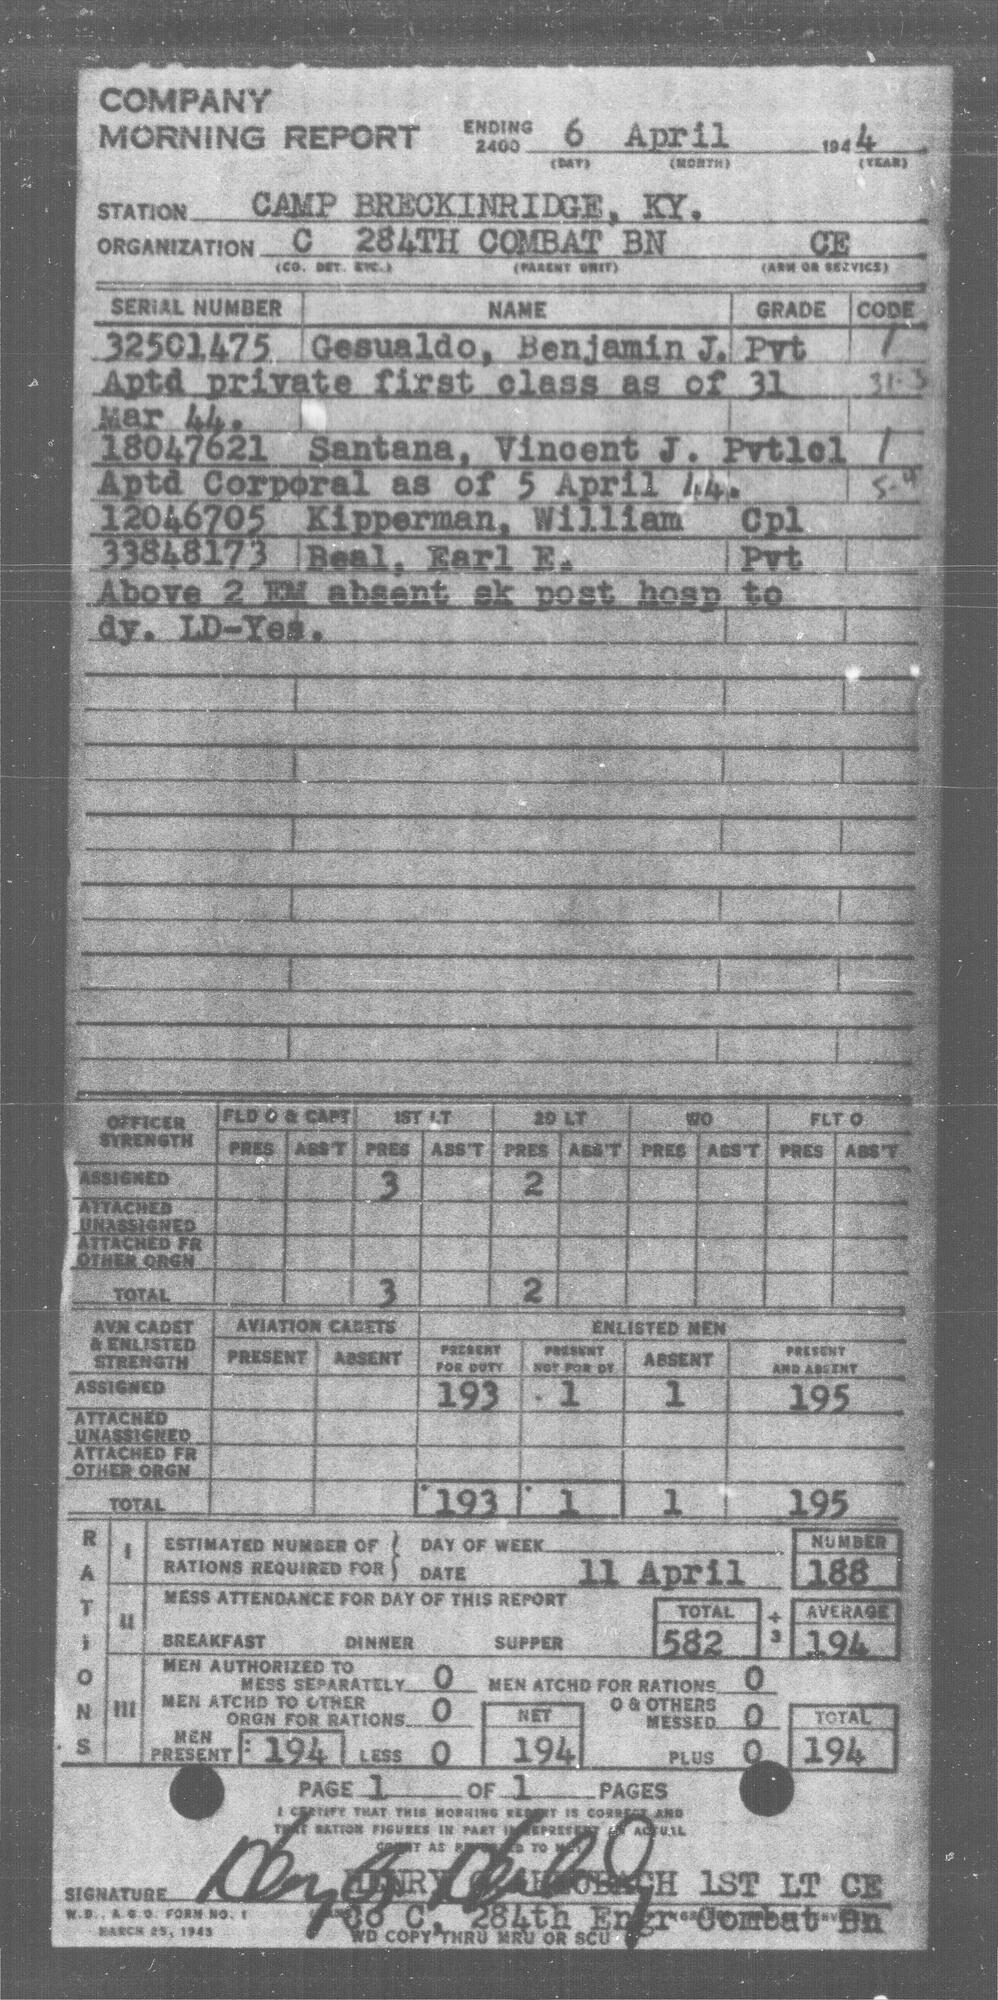 COMPANY
MORNING REPORT ENDING 2400 6 April 1944
(DAY) (MONTH) (YEAR)
STATION CAMP BRECKINRIDGE, KY.
ORGANIZATION C 284TH COMBAT BN CE
(CO. DET. ETC.) (PARENT UNIT) (ARM OR SERVICE)
SERIAL NUMBER NAME GRADE CODE
32501475 Gesualdo, Benjamin J. Pvt /
Aptd private first class as of 31 31-3
Mar 44.
18047621 Santana, Vincent J. Pvtlcl /
Aptd Corporal as of 5 April 44. 5-4
12046705 Kipperman, William Cpl
33848173 Beal, Earl E. Pvt
Above 2 EM absent sk post hosp to
dy. LD-Yes.
OFFICER STRENGTH FLD O & CAPT 1ST LT 2D LT WO FLT O
PRES ABS'T PRES ABS'T PRES ABS'T PRES ABS'T PRES ABS'T
ASSIGNED 3 2
ATTACHED UNASSIGNED
ATTACHED FR OTHER ORGN
TOTAL 3 2
AVN CADET & ENLISTED STRENGTH AVIATION CADETS ENLISTED MEN
PRESENT ABSENT PRESENT FOR DUTY PRESENT NOT FOR DY ABSENT PRESENT AND ABSENT
ASSIGNED 193 1 1 195
ATTACHED UNASSIGNED
ATTACHED FR OTHER ORGN
TOTAL 193 1 1 195
RATIONS
I ESTIMATED NUMBER OF DAY OF WEEK NUMBER
RATIONS REQUIRED FOR DATE 11 April 188
II MESS ATTENDANCE FOR DAY OF THIS REPORT TOTAL ÷ 3 AVERAGE
BREAKFAST DINNER SUPPER 582 194
III MEN AUTHORIZED TO MESS SEPARATELY 0 MEN ATCHD FOR RATIONS 0
MEN ATCHD TO OTHER ORGN FOR RATIONS 0 NET O & OTHERS MESSED 0 TOTAL
MEN PRESENT 194 LESS 0 194 PLUS 0 194
PAGE 1 OF 1 PAGES
I CERTIFY THAT THIS MORNING REPORT IS CORRECT AND
THAT RATION FIGURES IN PART III REPRESENT AN ACTUAL
COUNT AS REPORTED TO ME
SIGNATURE HENRY 1ST LT CE
W.D., A.G.O. FORM NO. 1 Co C, 284th Engr Combat Bn
MARCH 25, 1943 WD COPY THRU MRU OR SCU